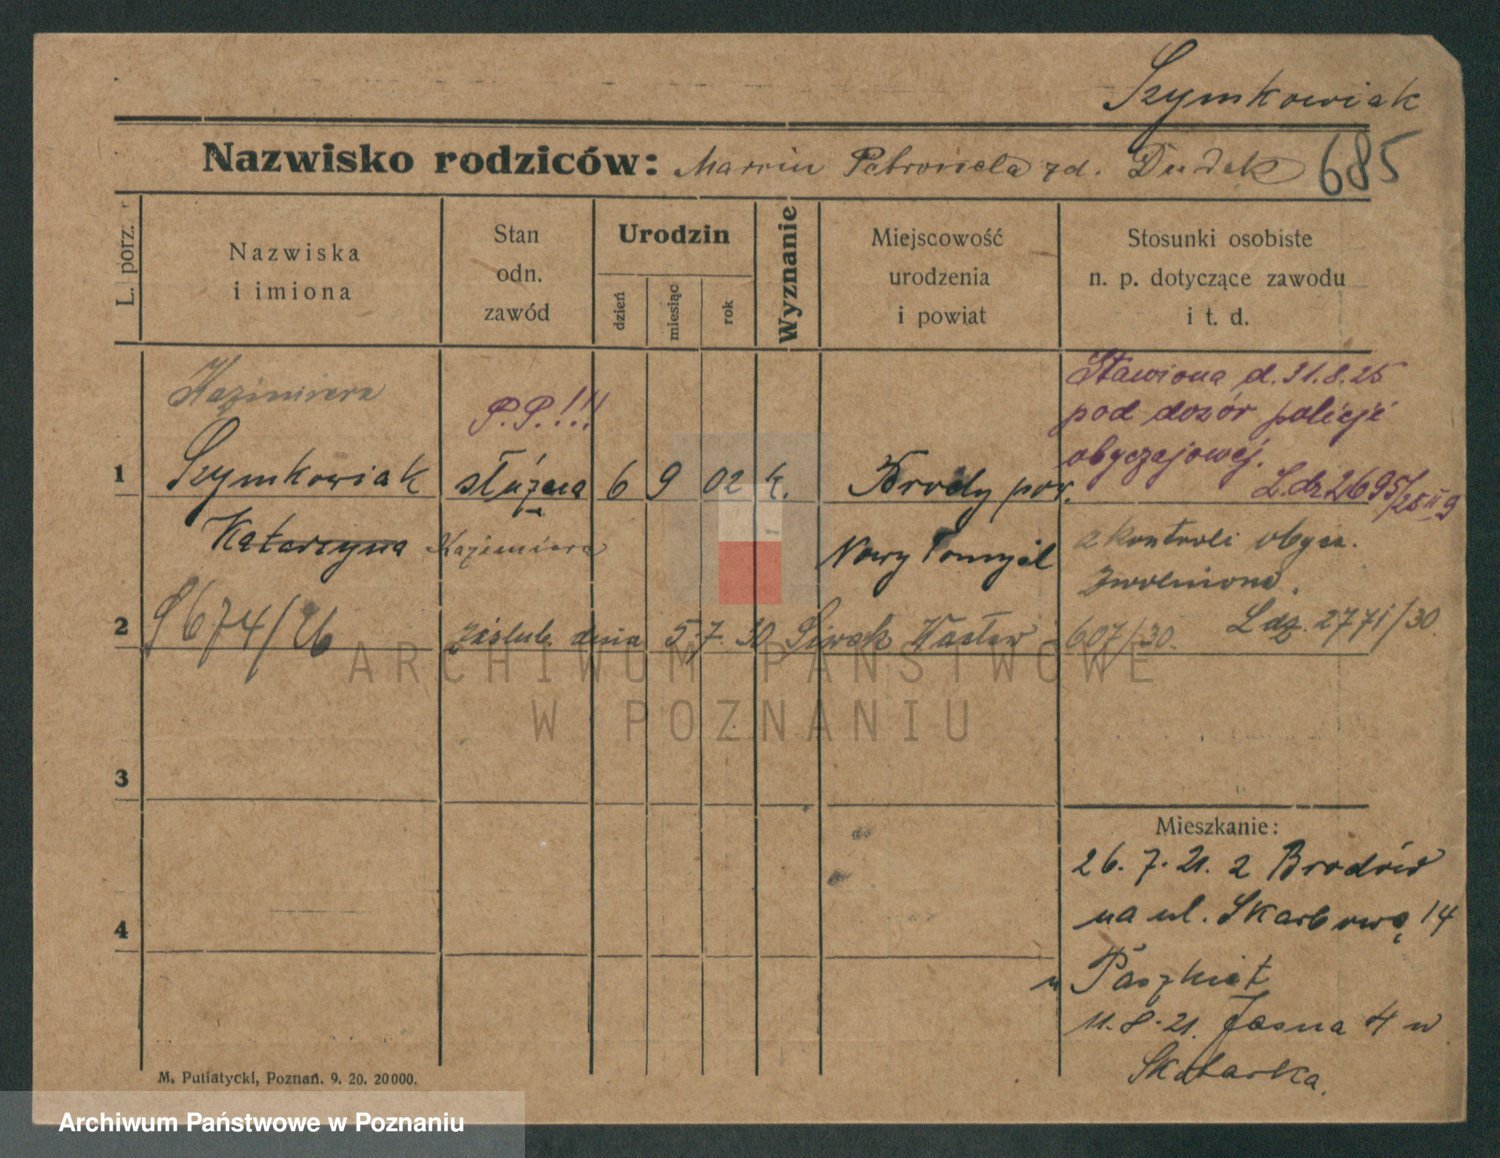 Szymkowiak
Nazwisko rodziców: Marcin Petronela zd. Dudek 685
L. porz.
Nazwiska
i imiona
Stan
odn.
zawód
Urodzin
dzień
miesiąc
rok
Wyznanie
Miejscowość
urodzenia
i powiat
Stosunki osobiste
n. p. dotyczące zawodu
i t. d.
Kazimiera
P.P.!!!
Stawiona d. 31.8.25
pod dozór policji
obyczajowej.
L.dz 2695/25 II 9
1 Szymkowiak służąca 6 9 02 k. Brody pow.
Katarzyna Kazimiera Nowy Tomyśl
z kontroli obycz.
zwolniona.
L.dz. 2771/30
2 S 674/26 zaślub. dnia 5.7.30 Siwek Wacław 607/30.
3
4
Mieszkanie:
26. 7. 21. z Brodów
na ul. Skarbową 14
u
11. 8. 21. Jasna 4 u
Skatarka.
M. Putiatycki, Poznań. 9. 20. 20000.
ARCHIWUM PAŃSTWOWE
W POZNANIU
Archiwum Państwowe w Poznaniu